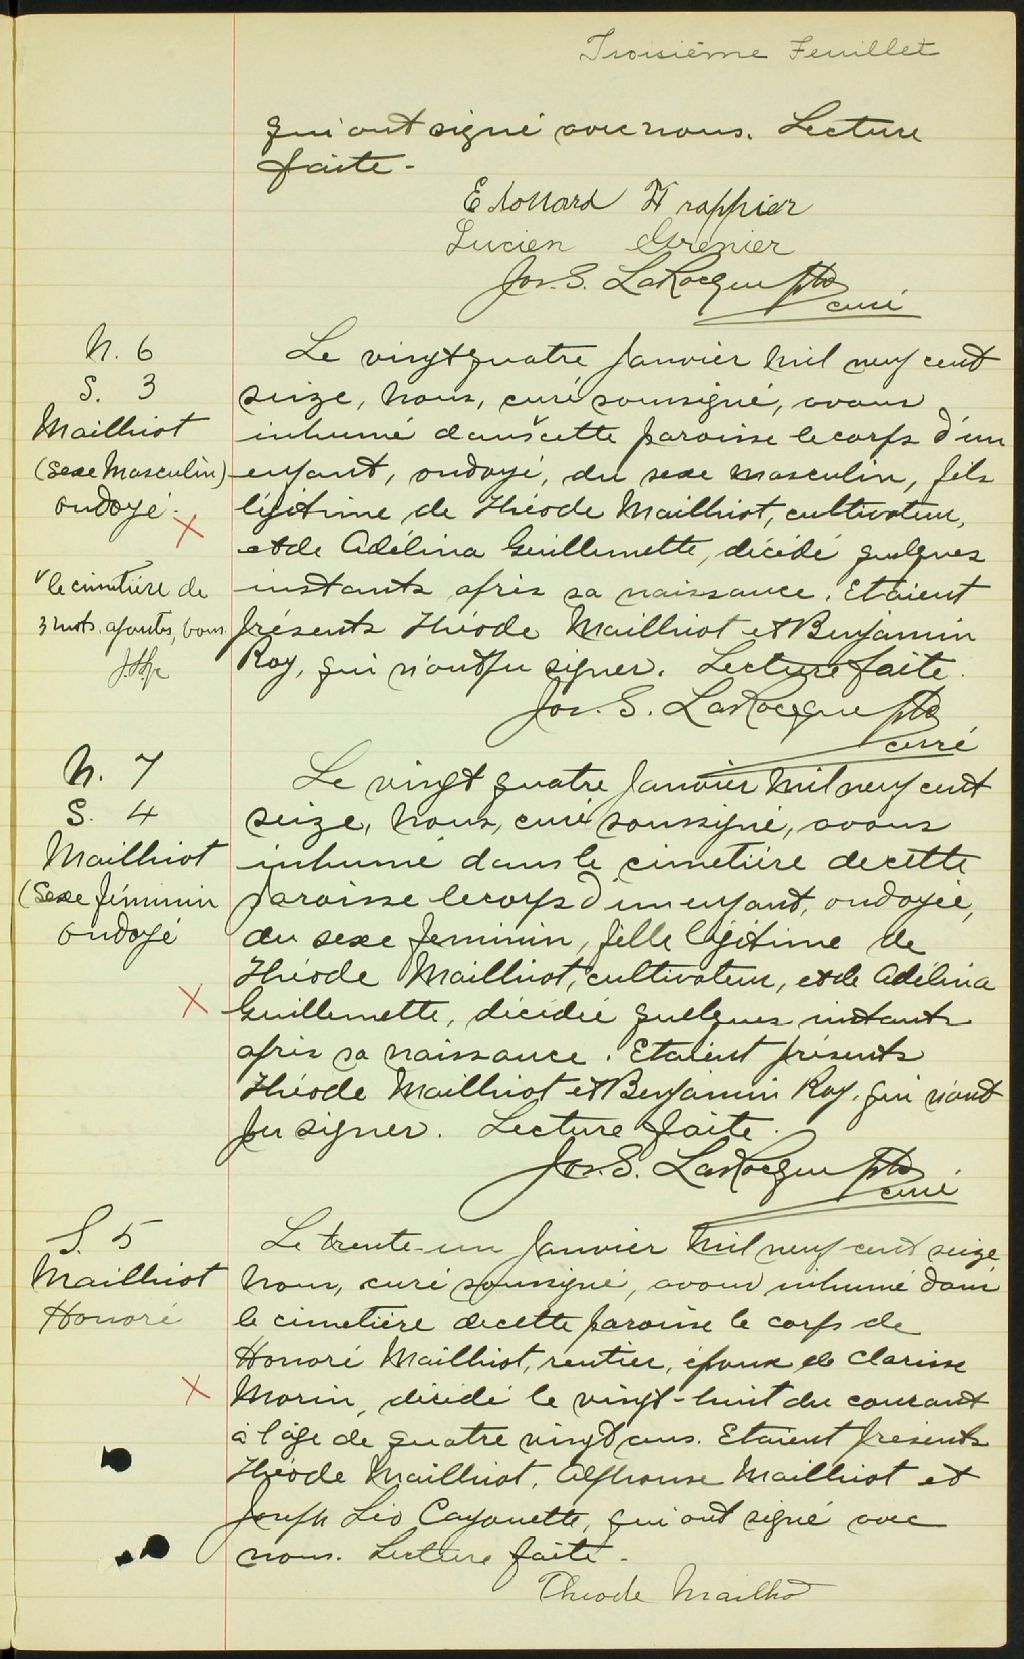 Troisième Feuillet
qui ont signé avec nous. Lecture
faite-
Edouard Frappier
Lucien Grenier
Jos. S. LaRocque ptre
curé
N. 6
S. 3
Mailhiot
(Sexe Masculin)
ondoyé.
Le vingt quatre Janvier mil neuf cent
seize, Nous, curé soussigné, avons
inhumé dans cette paroisse le corps d'un
enfant, ondoyé, du sexe masculin, fils
légitime de Théode Mailhiot, cultivateur,
et de Adélina Guillemette, décédé quelques
instants après sa naissance. Etaient
présents Théode Mailhiot et Benjamin
Roy, qui n'ont pu signer. Lecture faite.
√ le cimetière de
3 mots ajoutés, bons.
Jos. S. LaRocque ptre
curé
N. 7
S. 4
Mailhiot
(Sexe féminin
ondoyé
Le vingt quatre Janvier mil neuf cent
seize, Nous, curé soussigné, avons
inhumé dans le cimetière de cette
paroisse le corps d'un enfant, ondoyée,
du sexe feminin, fille légitime de
Théode Mailhiot, cultivateur, et de Adélina
Guillemette, décédée quelques instants
après sa naissance. Etaient présents
Théode Mailhiot et Benjamin Roy, qui n'ont
pu signer. Lecture faite.
Jos. S. LaRocque ptre
curé
S. 5
Mailhiot
Honoré
Le trente-un Janvier mil neuf cent seize
Nous, curé soussigné, avons inhumé dans
le cimetière de cette paroisse le corps de
Honoré Mailhiot, rentier, époux de Clarisse
Morin, décédé le vingt-huit du courant
à l'âge de quatre vingt ans. Etaient présents
Théode Mailhiot, Alphonse Mailhiot et
Joseph Léo Cayouette, qui ont signé avec
nous. Lecture faite-
Théode Mailho